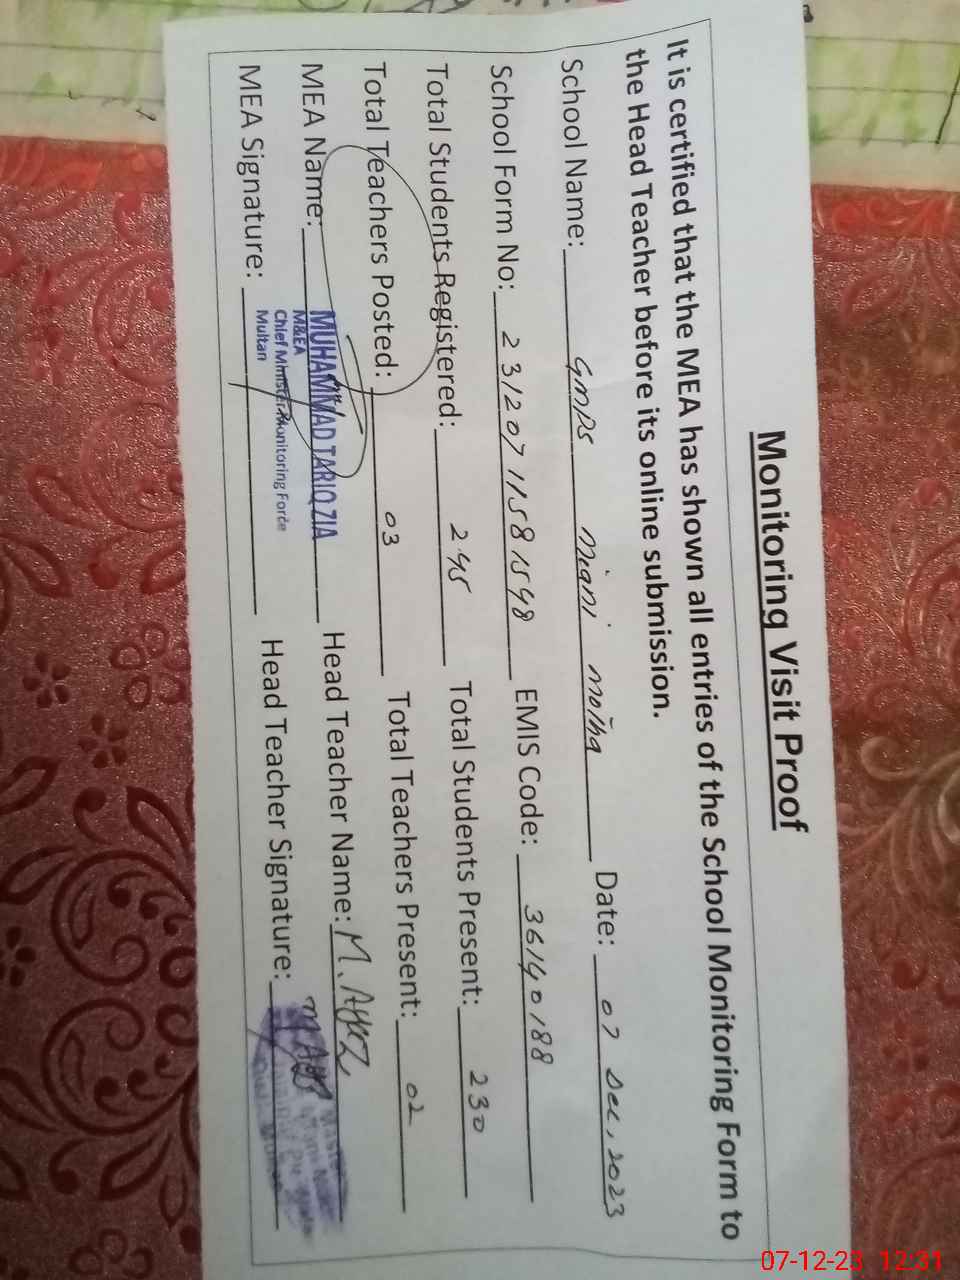 Monitoring Visit Proof
It is certified that the MEA has shown all entries of the School Monitoring Form to
the Head Teacher before its online submission.
School Name: GMPS Miani Motha Date: 07 Dec, 2023
School Form No: 231207115815498 EMIS Code: 36140188
Total Students Registered: 245 Total Students Present: 230
Total Teachers Posted: 03 Total Teachers Present: 02
MEA Name: MUHAMMAD TARIQ ZIA Head Teacher Name: M. Ayaz
M&EA
Chief Minister Monitoring Force
Multan
MEA Signature: Head Teacher Signature:
07-12-23 12:31